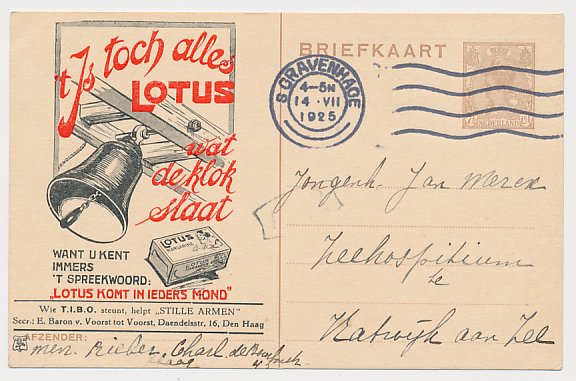 't Is toch alles
LOTUS
wat
de klok
slaat
LOTUS
MARGARINE
WANT U KENT
IMMERS
'T SPREEKWOORD:
„LOTUS KOMT IN IEDERS MOND"
Wie T.I.B.O. steunt, helpt „STILLE ARMEN"
Secr.: E. Baron v. Voorst tot Voorst, Daendelsstr. 16, Den Haag
AFZENDER:
mevr. Rieber, Charl. de
BRIEFKAART
NEDERLAND
'S GRAVENHAGE
4-5N
14 · VII
1925
Jongenh. Jan Merck
Zeehospitium
te
Katwijk aan Zee